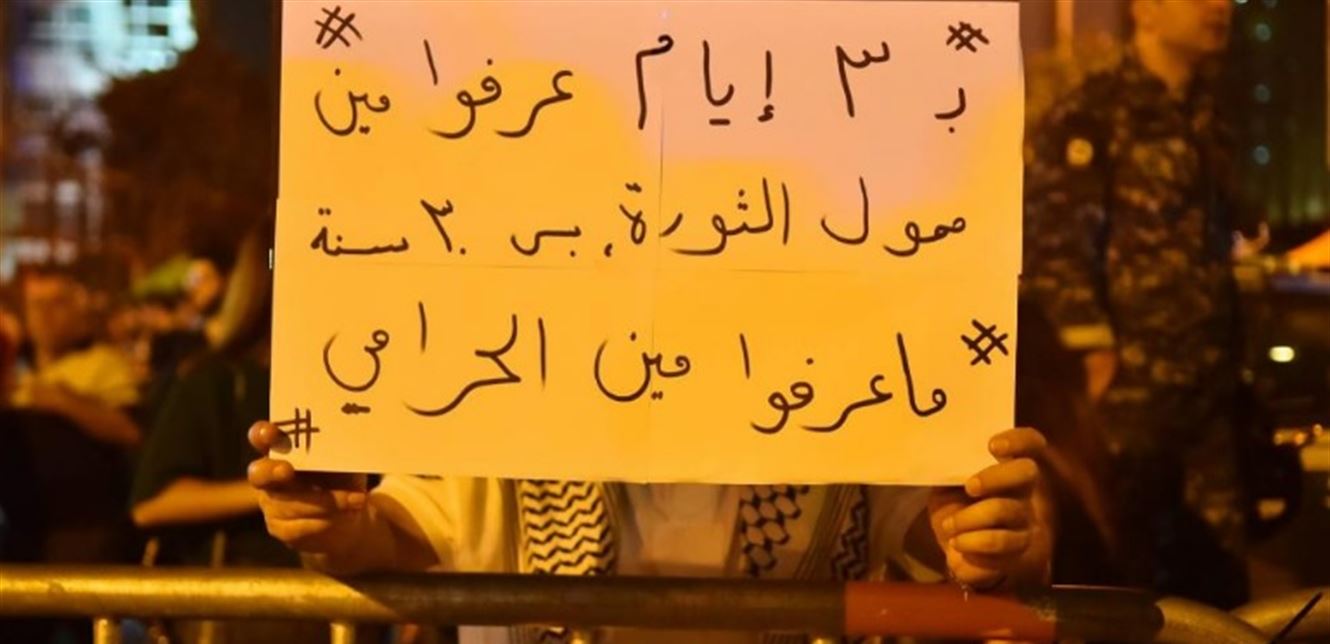 # بـ ٣ إيام عرفوا مين #
ممول الثورة، بس ٣٠ سنة
# ما عرفوا مين الحرامي #